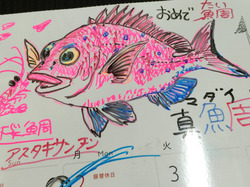 おめで
たい
魚周
桜鯛
マダイ
真魚周
アスタキサンチン
Sun
月 Mon
火
振替休日
3